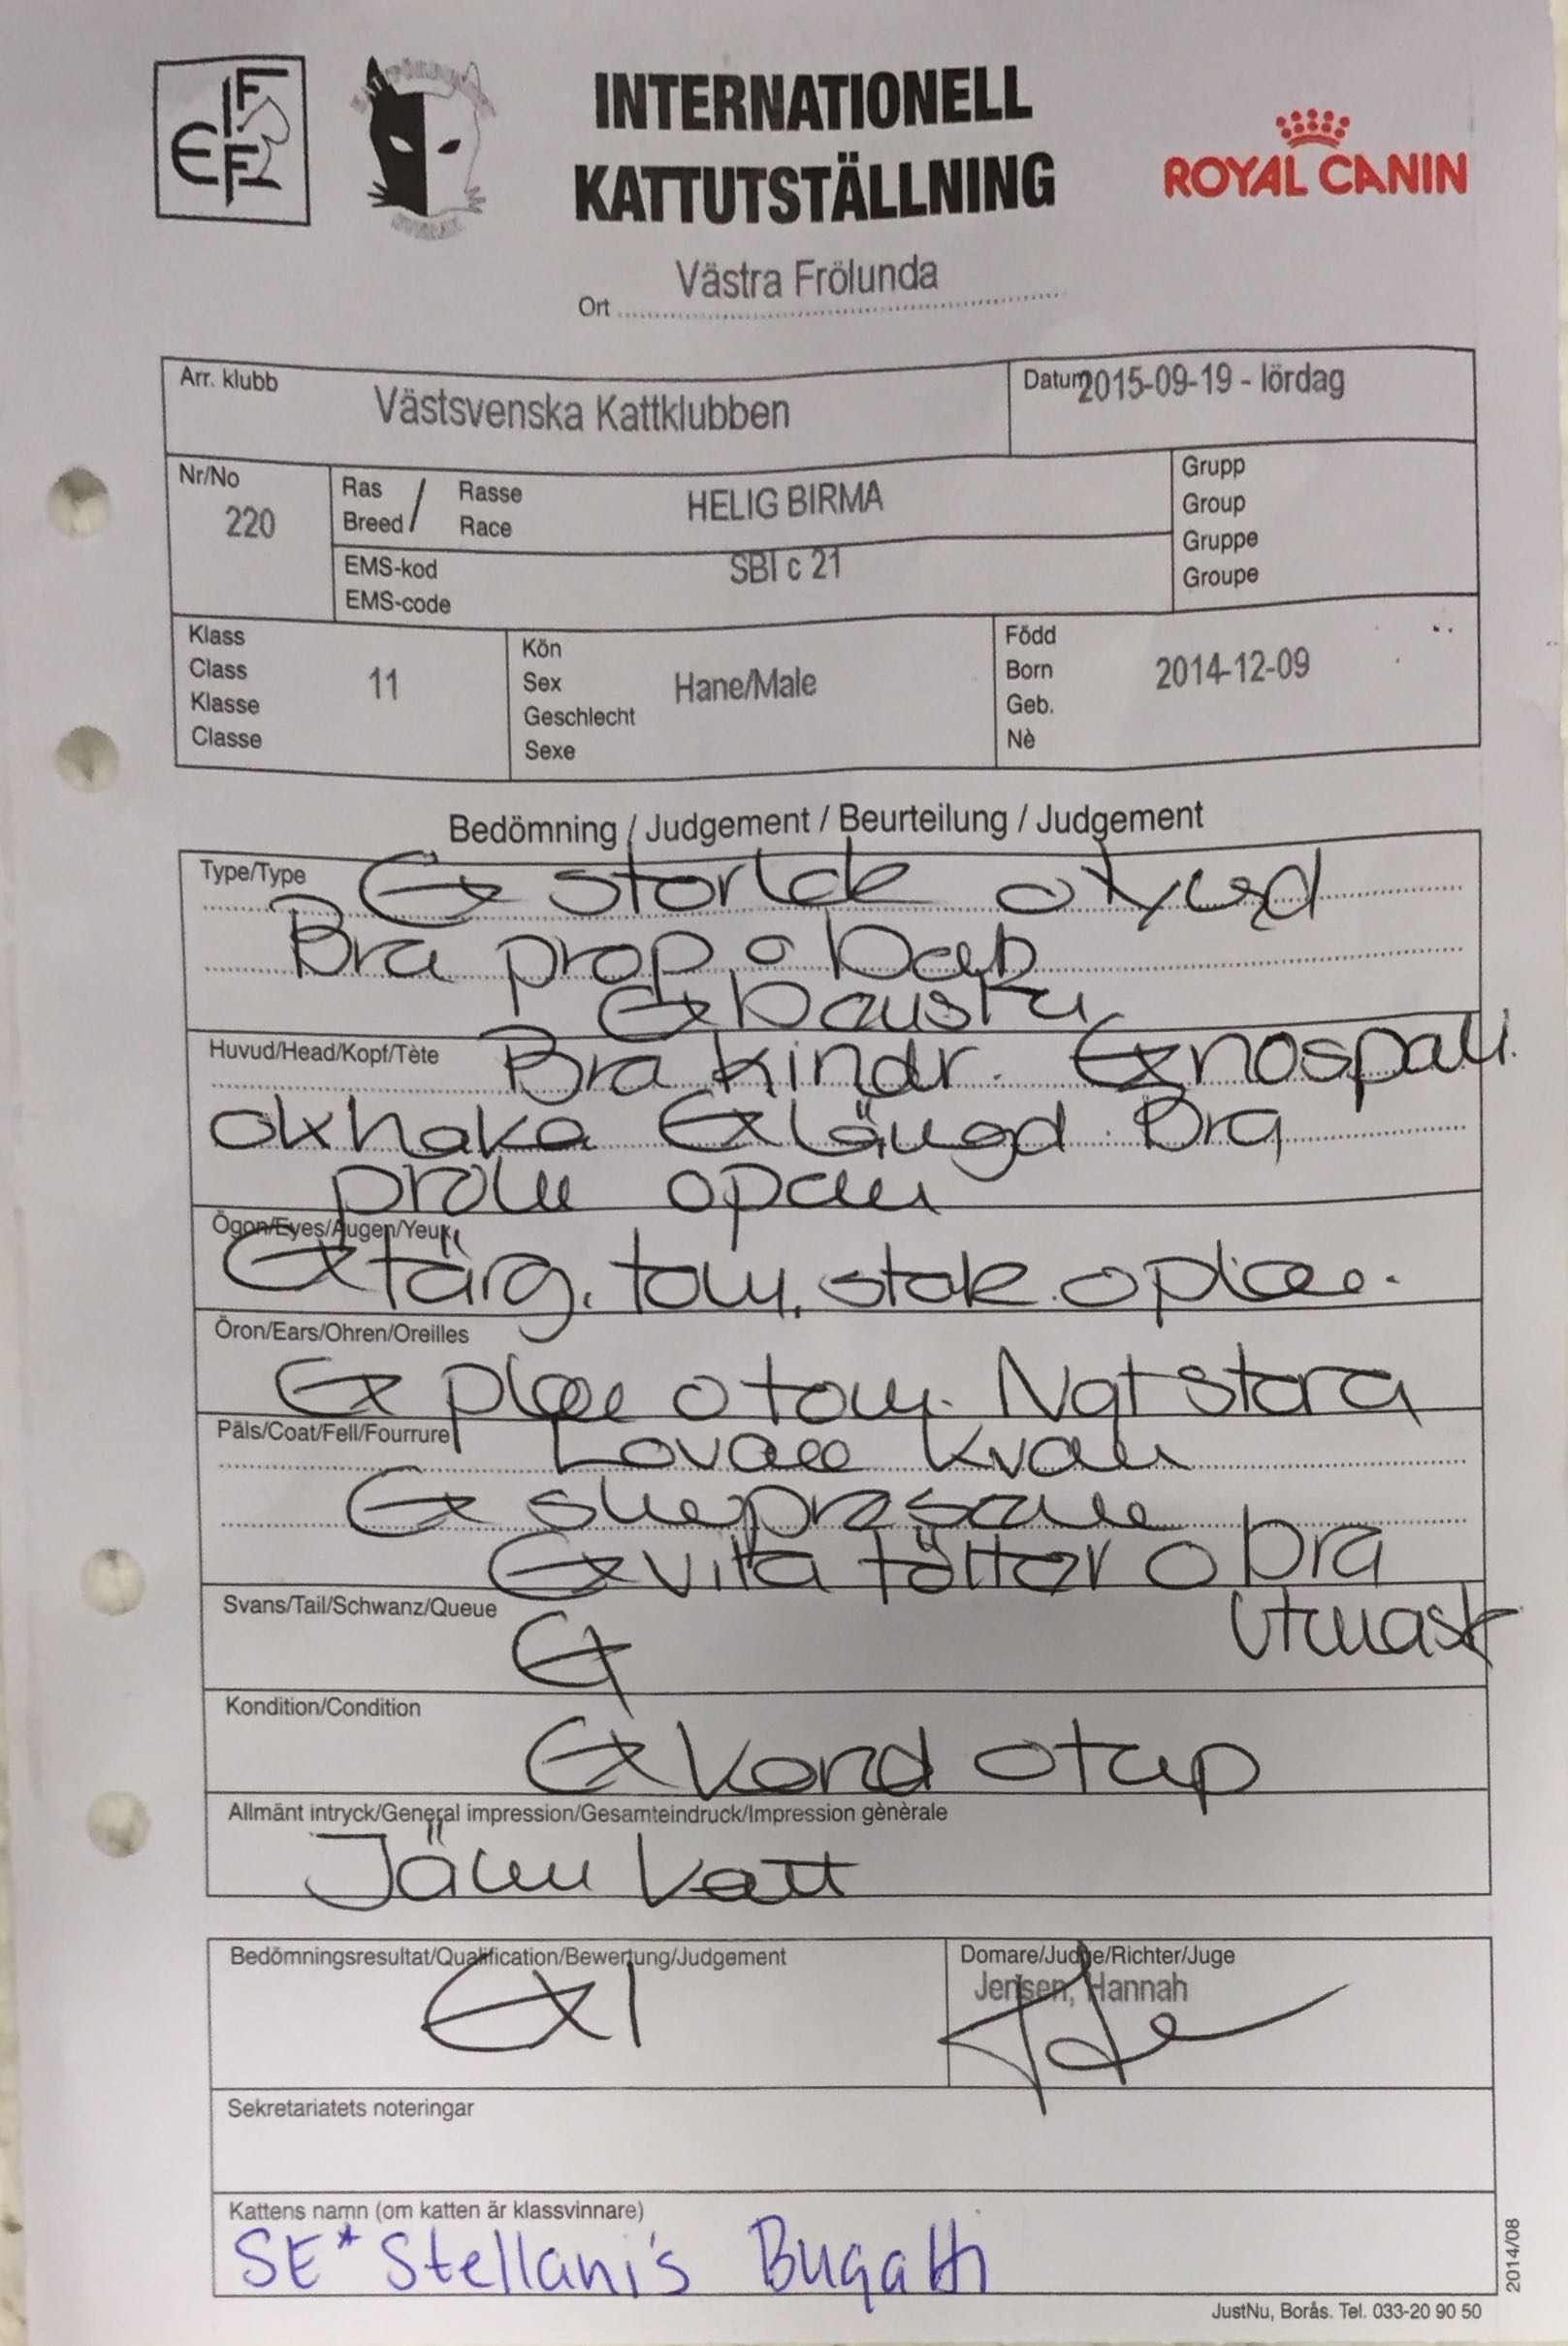 FIFe
INTERNATIONELL
KATTUTSTÄLLNING
ROYAL CANIN
Ort Västra Frölunda
Arr. klubb Västsvenska Kattklubben
Datum 2015-09-19 - lördag
Nr/No 220
Ras / Rasse
Breed / Race
HELIG BIRMA
EMS-kod
EMS-code
SBI c 21
Grupp
Group
Gruppe
Groupe
Klass
Class
Klasse
Classe
11
Kön
Sex
Geschlecht
Sexe
Hane/Male
Född
Born
Geb.
Nè
2014-12-09
Bedömning / Judgement / Beurteilung / Judgement
Type/Type Ex storlek o tyngd
Bra prop. o
Ex
Huvud/Head/Kopf/Tète Bra kindr. Ex nospart.
o haka Ex längd Bra
profil o pann
Ögon/Eyes/Augen/Yeux
Ex färg, form, stolk o plac.
Öron/Ears/Ohren/Oreilles
Ex plac o form. Ngt stora
Päls/Coat/Fell/Fourrure Lovande kval
Ex
Ex vita fötter o bra
Svans/Tail/Schwanz/Queue
Ex
Kondition/Condition
Ex kond o tup
Allmänt intryck/General impression/Gesamteindruck/Impression gènèrale
Jämn katt
Bedömningsresultat/Qualification/Bewertung/Judgement
Ex1
Domare/Judge/Richter/Juge
Jensen, Hannah
Sekretariatets noteringar
Kattens namn (om katten är klassvinnare)
SE* Stellani's Bugatti
2014/08
JustNu, Borås. Tel. 033-20 90 50